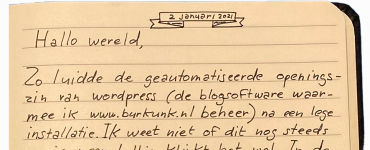 2 januari 2021
Hallo wereld,
Zo luidde de geautomatiseerde openings-
zin van wordpress (de blogsoftware waar-
mee ik www.burkunk.nl beheer) na een lege
installatie. Ik weet niet of dit nog steeds